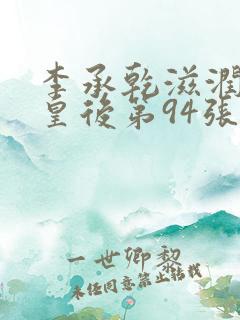 李承乾滋潤
皇後第94張
一世卿黎
未任同意禁止转载